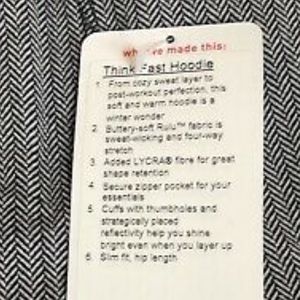 why we made this:
Think Fast Hoodie
1. From cozy sweat layer to
post-workout perfection, this
soft and warm hoodie is a
winter wonder
2. Buttery-soft Rulu™ fabric is
sweat-wicking and four-way
stretch
3. Added LYCRA® fibre for great
shape retention
4. Secure zipper pocket for your
essentials
5. Cuffs with thumbholes and
strategically placed
reflectivity help you shine
bright even when you layer up
6. Slim fit, hip length